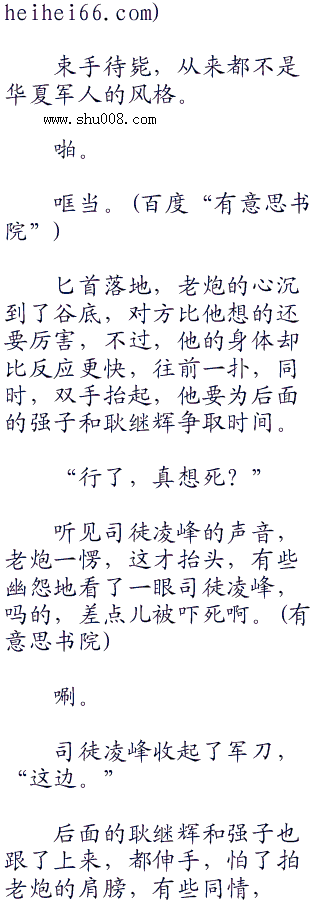 heihei66.com)
束手待毙，从来都不是
华夏军人的风格。
www.shu008.com
啪。
哐当。(百度“有意思书
院”)
匕首落地，老炮的心沉
到了谷底，对方比他想的还
要厉害，不过，他的身体却
比反应更快，往前一扑，同
时，双手抬起，他要为后面
的强子和耿继辉争取时间。
“行了，真想死？”
听见司徒凌峰的声音，
老炮一愣，这才抬头，有些
幽怨地看了一眼司徒凌峰，
吗的，差点儿被吓死啊。(有
意思书院)
唰。
司徒凌峰收起了军刀，
“这边。”
后面的耿继辉和强子也
跟了上来，都伸手，怕了拍
老炮的肩膀，有些同情，